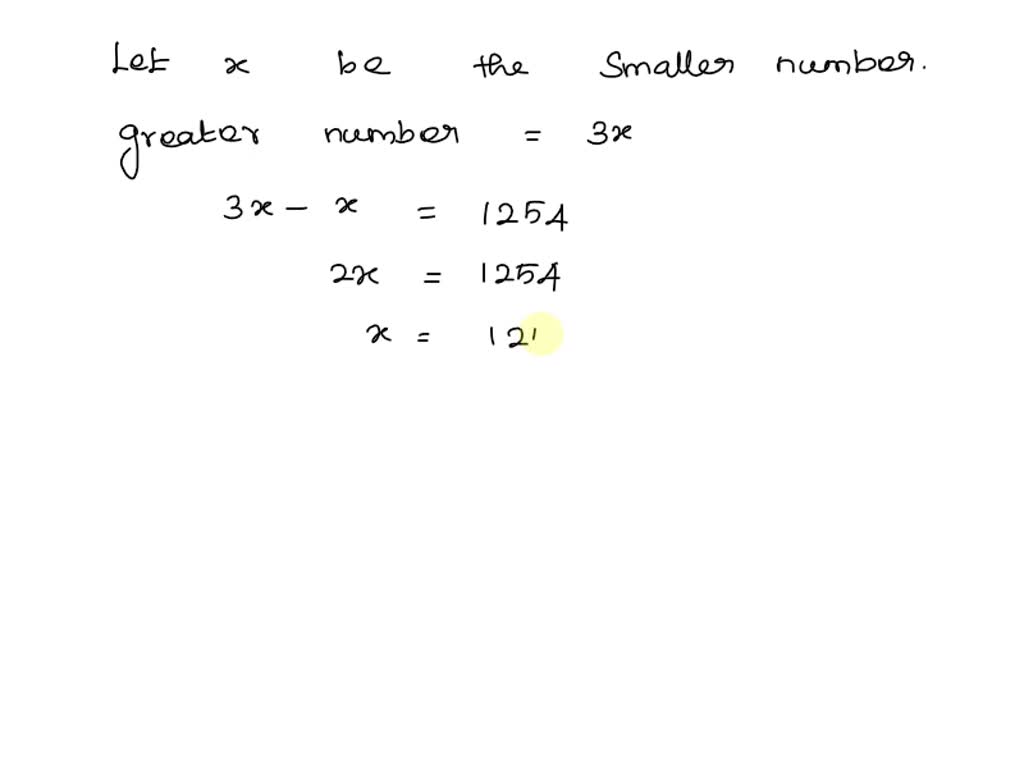 Let x be the smaller number.
greater number = 3x
3x - x = 1254
2x = 1254
x = 12